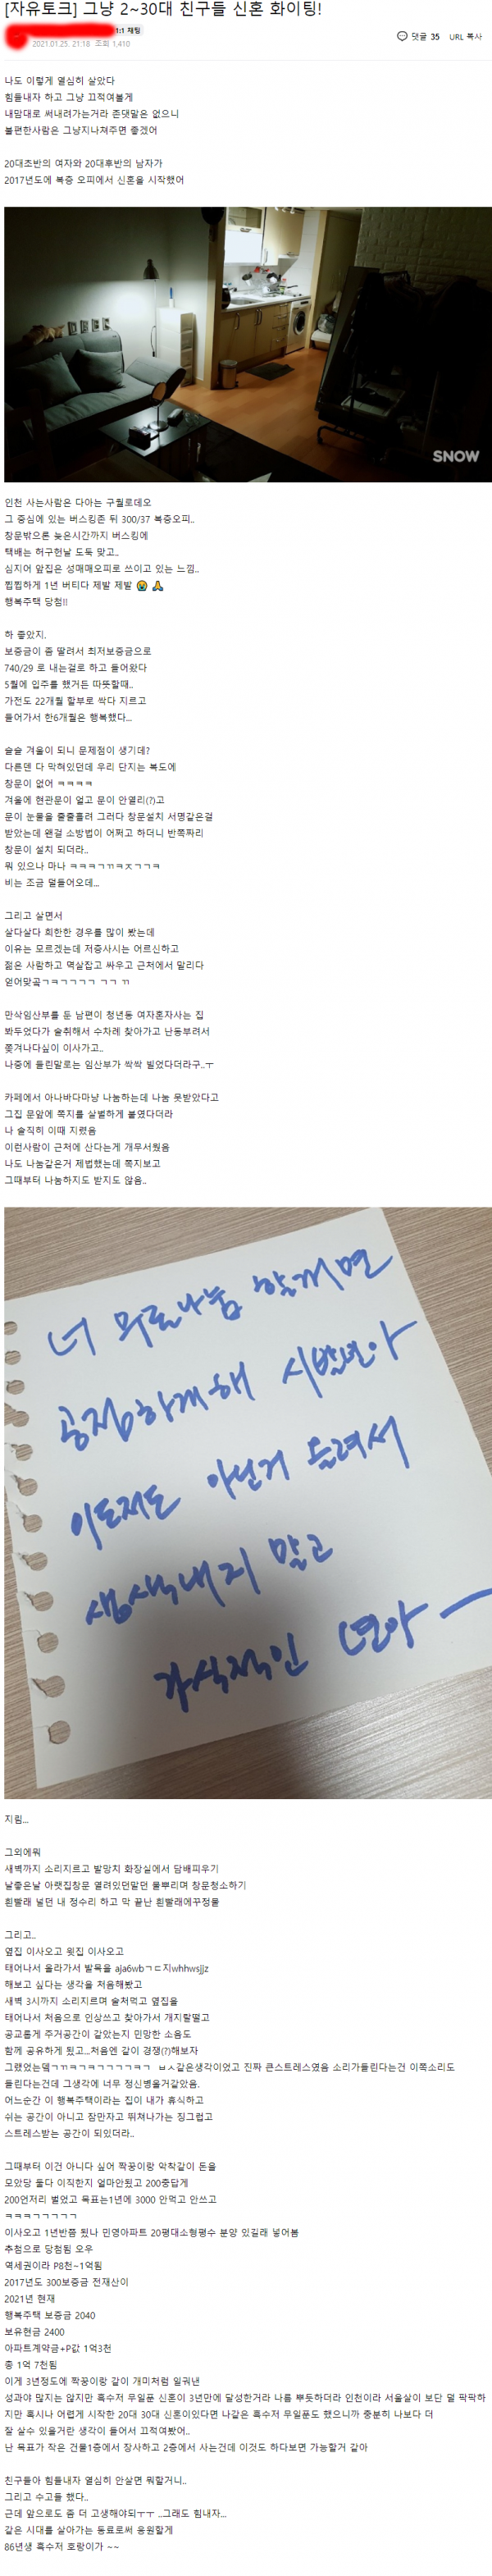 [자유토크] 그냥 2~30대 친구들 신혼 화이팅!
1:1 채팅
2021.01.25. 21:18 조회 1,410
댓글 35 URL 복사
나도 이렇게 열심히 살았다
힘들내자 하고 그냥 끄적여볼게
내맘대로 써내려가는거라 존댓말은 없으니
불편한사람은 그냥지나쳐주면 좋겠어
20대초반의 여자와 20대후반의 남자가
2017년도에 복층 오피에서 신혼을 시작했어
SNOW
인천 사는사람은 다아는 구월로데오
그 중심에 있는 버스킹존 뒤 300/37 복층오피..
창문밖으론 늦은시간까지 버스킹에
택배는 허구헌날 도둑 맞고..
심지어 앞집은 성매매오피로 쓰이고 있는 느낌..
찝찝하게 1년 버티다 제발 제발 😭 🙏
행복주택 당첨!!
하 좋았지.
보증금이 좀 딸려서 최저보증금으로
740/29 로 내는걸로 하고 들어왔다
5월에 입주를 했거든 따뜻할때..
가전도 22개월 할부로 싹다 지르고
들어가서 한6개월은 행복했다...
슬슬 겨울이 되니 문제점이 생기데?
다른덴 다 막혀있던데 우리 단지는 복도에
창문이 없어 ㅋㅋㅋㅋ
겨울에 현관문이 얼고 문이 안열리(?)고
문이 눈물을 줄줄흘려 그러다 창문설치 서명같은걸
받았는데 왠걸 소방법이 어쩌고 하더니 반쪽짜리
창문이 설치 되더라..
뭐 있으나 마나 ㅋㅋㅋㄱㄲㅋㅈㄱㄱㅋ
비는 조금 덜들어오데...
그리고 살면서
살다살다 희한한 경우를 많이 봤는데
이유는 모르겠는데 저층사시는 어르신하고
젊은 사람하고 멱살잡고 싸우고 근처에서 말리다
얻어맞곸ㄱㅋㄱㄱㄱㄱ ㄱㄱ ㄲ
만삭임산부를 둔 남편이 청년동 여자혼자사는 집
봐두었다가 술취해서 수차례 찾아가고 난동부려서
쫓겨나다싶이 이사가고..
나중에 들린말로는 임산부가 싹싹 빌었다더라구..ㅜ
카페에서 아나바다마냥 나눔하는데 나눔 못받았다고
그집 문앞에 쪽지를 살벌하게 붙였다더라
나 솔직히 이때 지렸음
이런사람이 근처에 산다는게 개무서웠음
나도 나눔같은거 제법했는데 쪽지보고
그때부터 나눔하지도 받지도 않음..
너 무료나눔 할꺼면
공정하게해 시발년아
이도저도 아닌거 들려서
생색내지 말고
가식적인 년아ㅡ
지림...
그외에뭐
새벽까지 소리지르고 발망치 화장실에서 담배피우기
날좋은날 아랫집창문 열려있던말던 물뿌리며 창문청소하기
흰빨래 널던 내 정수리 하고 막 끝난 흰빨래에꾸정물
그리고..
옆집 이사오고 윗집 이사오고
태어나서 올라가서 발목을 aja6wbㄱㄷ지whhwsjjz
해보고 싶다는 생각을 처음해봤고
새벽 3시까지 소리지르며 술처먹고 옆집을
태어나서 처음으로 인상쓰고 찾아가서 개지랄떨고
공교롭게 주거공간이 같았는지 민망한 소음도
함께 공유하게 됬고..처음엔 같이 경쟁(?)해보자
그랬었는뎈ㄱㄲㅋㄱㅋㄱㄱㄱㄱㅋㄱ ㅂㅅ같은생각이었고 진짜 큰스트레스였음 소리가들린다는건 이쪽소리도
들린다는건데 그생각에 너무 정신병올거같았음.
어느순간 이 행복주택이라는 집이 내가 휴식하고
쉬는 공간이 아니고 잠만자고 뛰쳐나가는 징그럽고
스트레스받는 공간이 되있더라..
그때부터 이건 아니다 싶어 짝꿍이랑 악착같이 돈을
모았당 둘다 이직한지 얼마안됬고 200중답게
200언저리 벌었고 목표는1년에 3000 안먹고 안쓰고
ㅋㅋㅋㄱㄱㄱㄱㄱ
이사오고 1년반쯤 됬나 민영아파트 20평대소형평수 분양 있길래 넣어봄
추첨으로 당첨됨 오우
역세권이라 P8천~1억됨
2017년도 300보증금 전재산이
2021년 현재
행복주택 보증금 2040
보유현금 2400
아파트계약금+P값 1억3천
총 1억 7천됨
이게 3년정도에 짝꿍이랑 같이 개미처럼 일궈낸
성과야 많지는 않지만 흑수저 무일푼 신혼이 3년만에 달성한거라 나름 뿌듯하더라 인천이라 서울살이 보단 덜 팍팍하
지만 혹시나 어렵게 시작한 20대 30대 신혼이있다면 나같은 흑수저 무일푼도 했으니까 충분히 나보다 더
잘 살수 있을거란 생각이 들어서 끄적여봤어..
난 목표가 작은 건물1층에서 장사하고 2층에서 사는건데 이것도 하다보면 가능할거 같아
친구들아 힘들내자 열심히 안살면 뭐할거니..
그리고 수고들 했다..
근데 앞으로도 좀 더 고생해야되ㅜㅜ ..그래도 힘내자...
같은 시대를 살아가는 동료로써 응원할게
86년생 흑수저 호랑이가 ~~